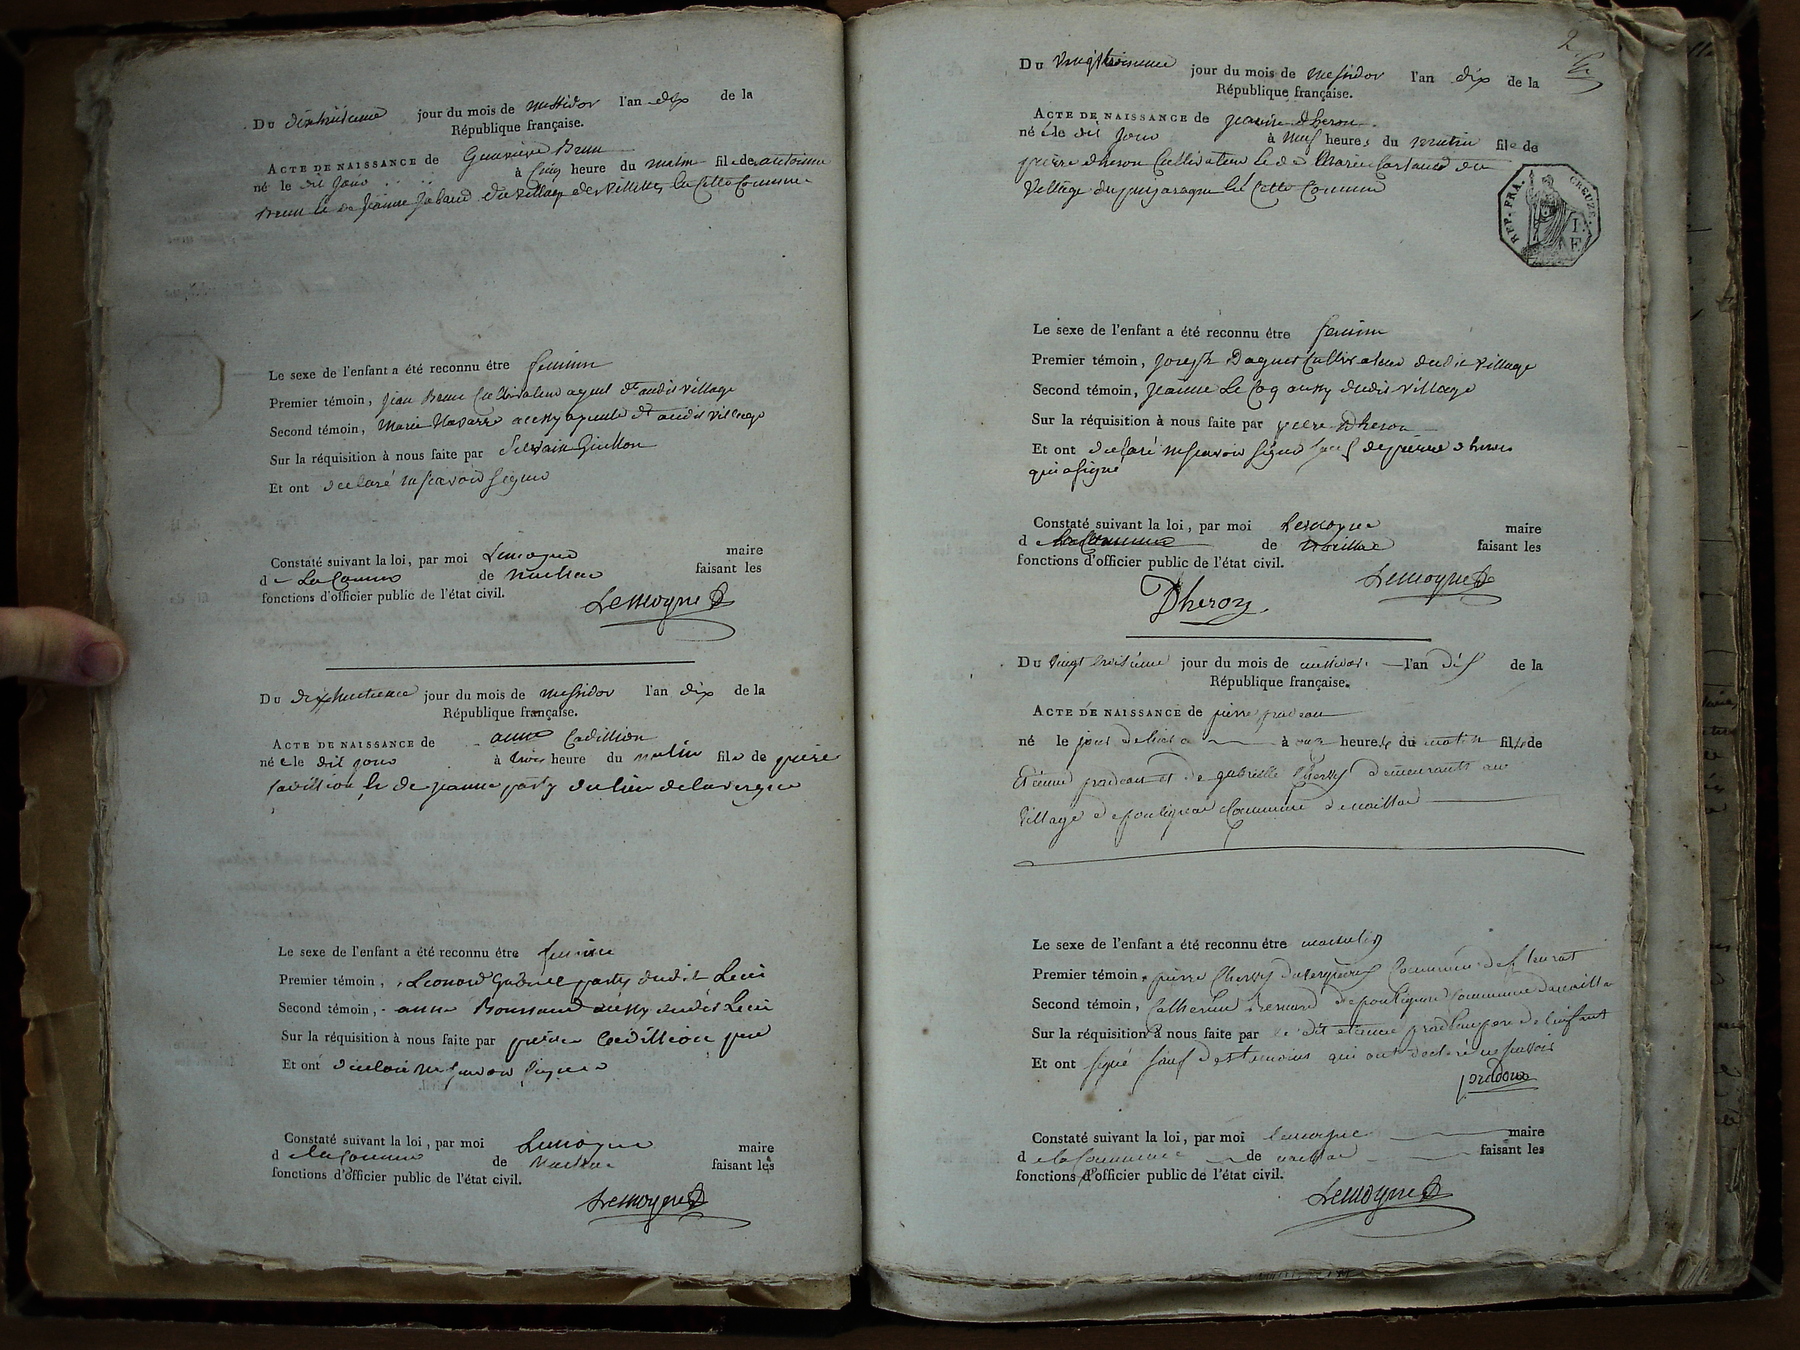 Du dixhuitieme jour du mois de messidor l'an dix de la
République française.
ACTE DE NAISSANCE de Genevieve Brun
né le dit jour à cinq heure du matin fil de antoine
Brun et de Jeanne Jabaud du village de villette en cette Commune
Le sexe de l'enfant a été reconnu être feminin
Premier témoin, jean Brun Cultivateur ayeul dt audit village
Second témoin, Marie Navarre aussy ayeule dt audit village
Sur la réquisition à nous faite par Silvain Guillon
Et ont declaré ne scavoir signer
Constaté suivant la loi, par moi Lemoyne maire
d e La Commune de naillac faisant les
fonctions d'officier public de l'état civil.
Lemoyne
Du dixhuitieme jour du mois de messidor l'an dix de la
République française.
ACTE DE NAISSANCE de anne Cadillion
né e le dit jour à trois heure du matin file de pierre
Cadillion et de jeanne party du lieu de lavergne
Le sexe de l'enfant a été reconnu être feminin
Premier témoin, Leonard Gabriel party dudit Lieu
Second témoin, anne Boussard aussy dudit Lieu
Sur la réquisition à nous faite par pierre Cadillion pere
Et ont declaré ne scavoir signer
Constaté suivant la loi, par moi Lemoyne maire
d e la Commune de Naillac faisant les
fonctions d'officier public de l'état civil.
Lemoyne
2
Du vingttroisieme jour du mois de messidor l'an dix de la
République française.
ACTE DE NAISSANCE de jeanne dheron
né e le dit jour à neuf heures du matin file de
pierre dheron Cultivateur et de Marie du
village du en cette Commune
REP. FRA. CREUZE.
Le sexe de l'enfant a été reconnu être feminin
Premier témoin, joseph Daguet Cultivateur dudit village
Second témoin, jeanne Le Coq aussy dudit village
Sur la réquisition à nous faite par pierre dheron
Et ont declaré ne scavoir signer sauf de pierre dheron
qui a signé
Constaté suivant la loi, par moi Lemoyne maire
d e la Commune de Noaillac faisant les
fonctions d'officier public de l'état civil.
Lemoyne
Dheron
Du vingt troisieme jour du mois de messidor l'an dix de la
République française.
ACTE DE NAISSANCE de pierre pradeau
né le jour à onze heures du matin fils de
Etienne pradeau et de gabrielle Chersy demeurants au
village de poulignac Commune de naillac
Le sexe de l'enfant a été reconnu être masculin
Premier témoin, pierre Chersy Commune de fleurat
Second témoin, Catherine Bernard de poulignac Commune de naillac
Sur la réquisition à nous faite par le dit etienne pradeau pere de l'enfant
Et ont signé sauf les temoins qui ont declaré ne scavoir
pradeau
Constaté suivant la loi, par moi lemoyne maire
d e la Commune de naillac faisant les
fonctions d'officier public de l'état civil.
Lemoyne